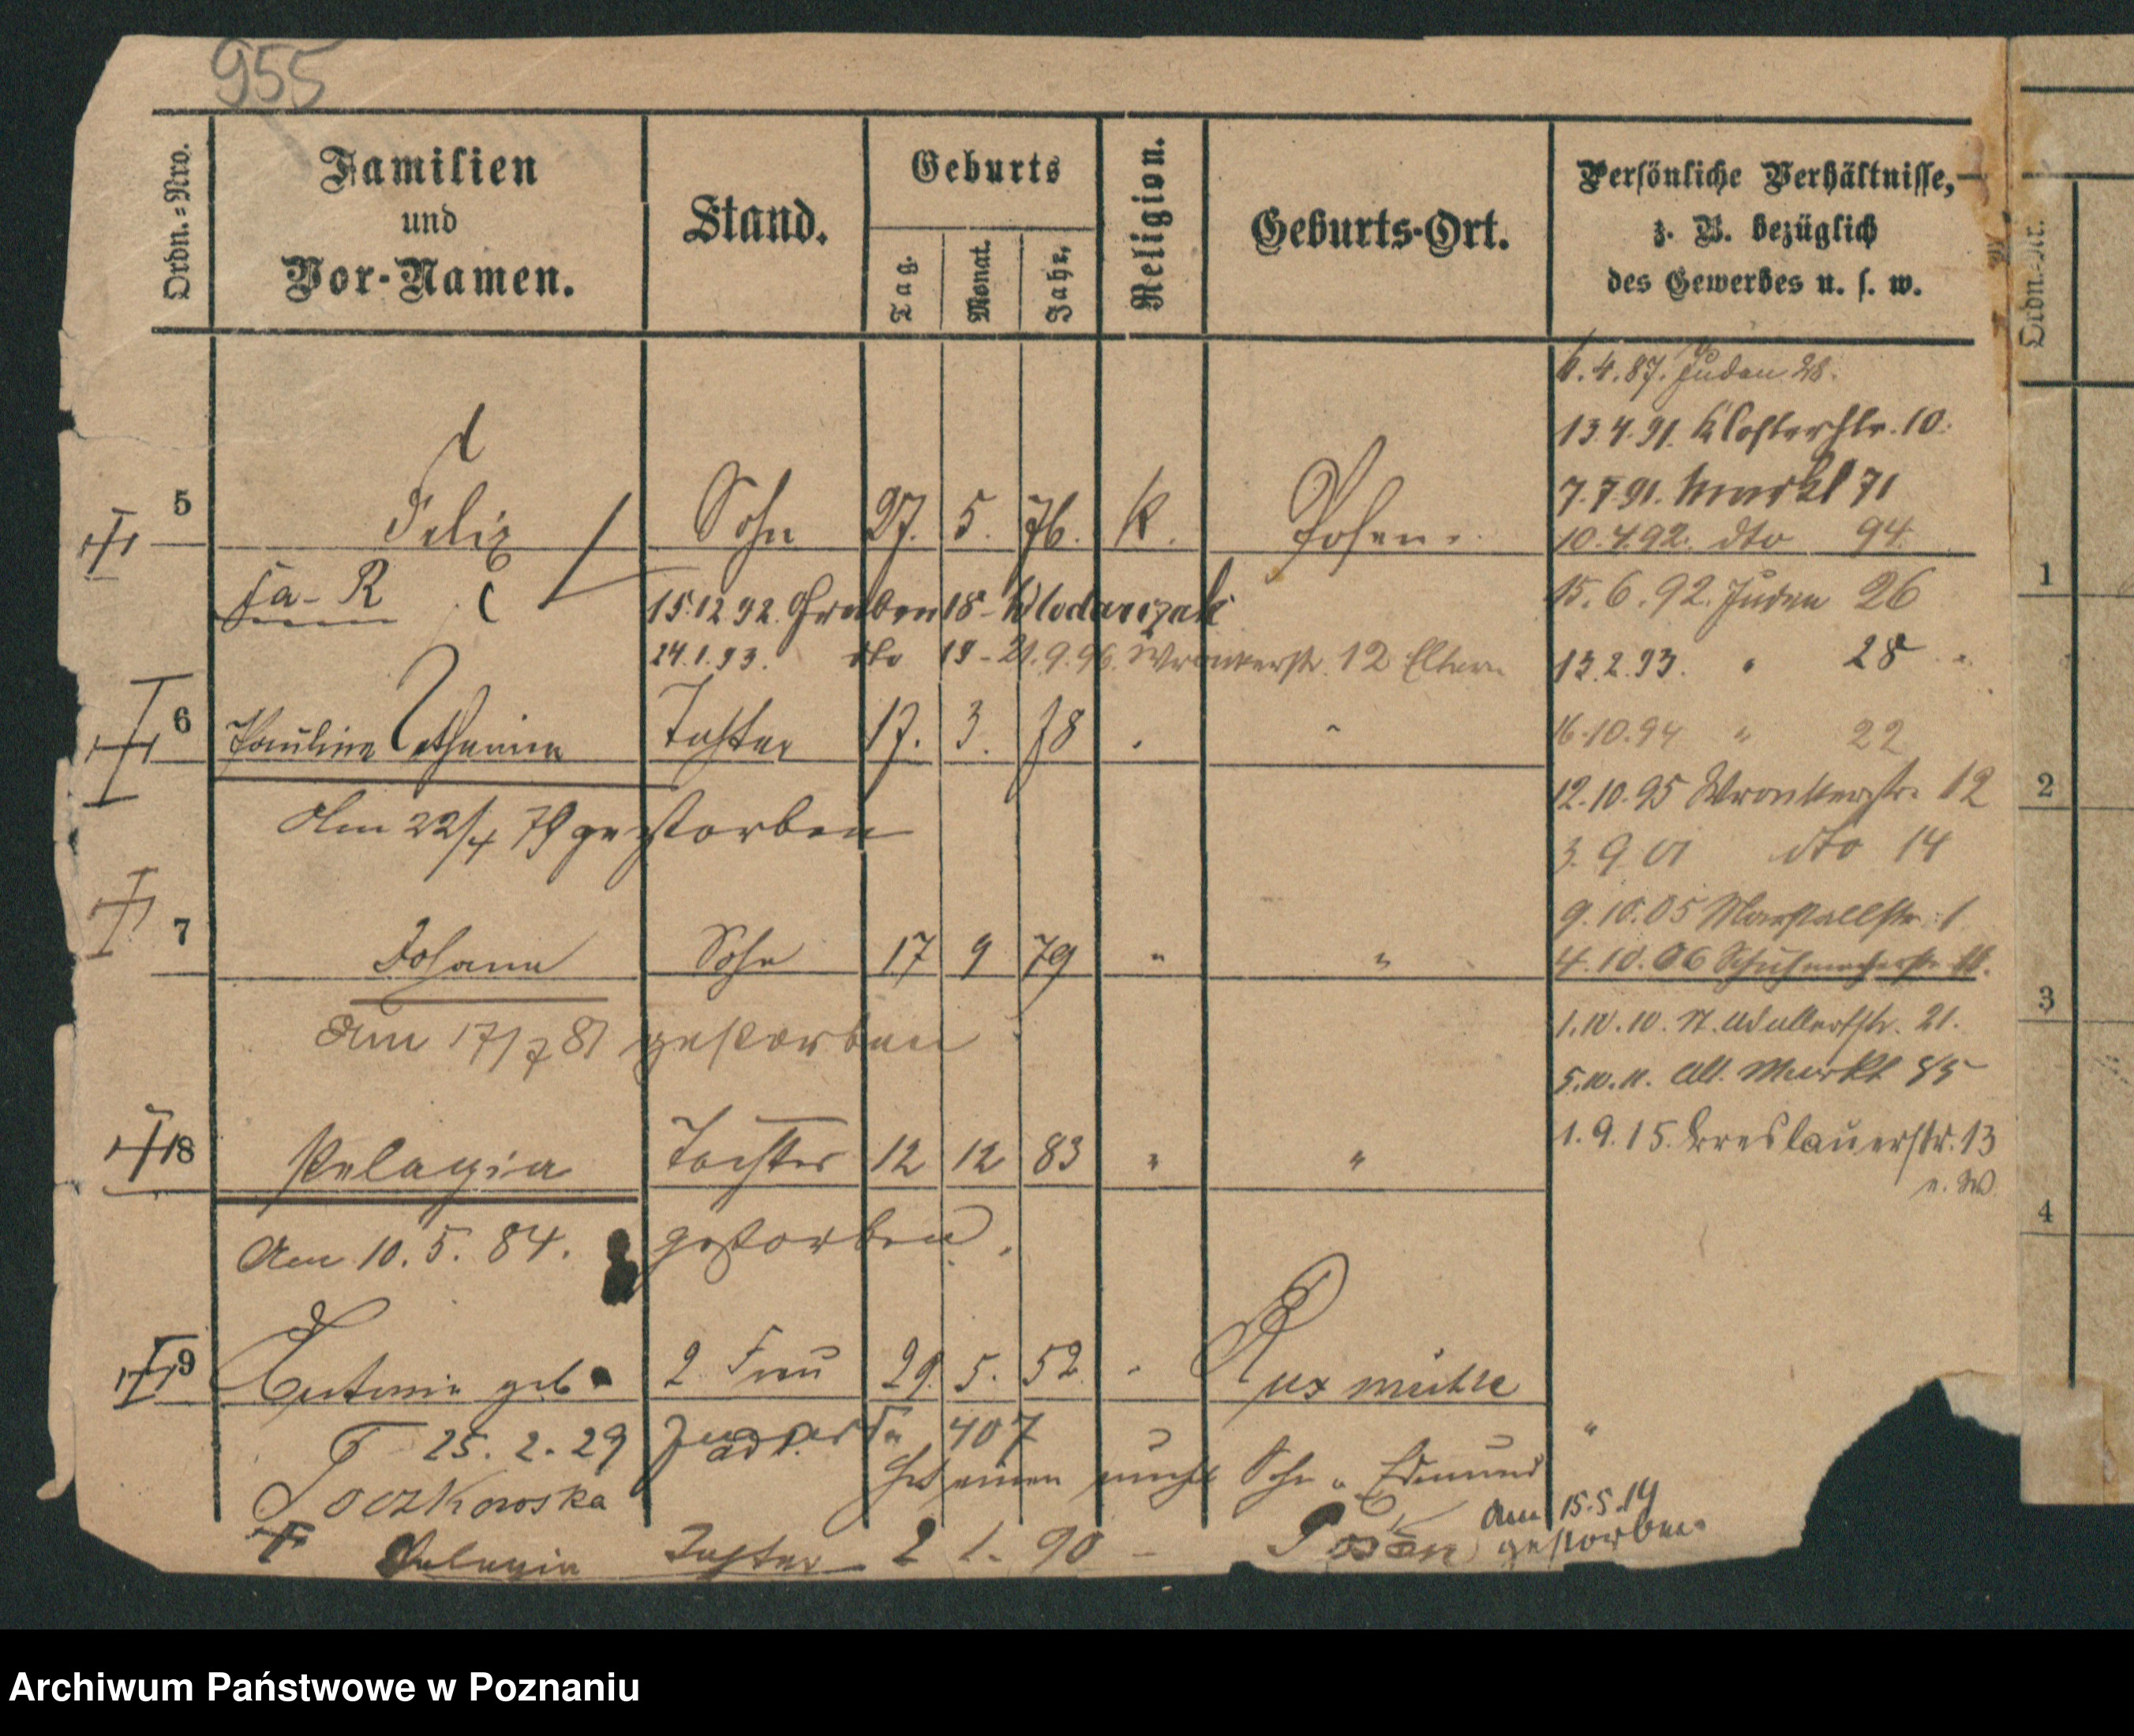 955
Ordn.-Nro.
Familien
und
Vor-Namen.
Stand.
Geburts
Tag.
Monat.
Jahr.
Religion.
Geburts-Ort.
Persönliche Verhältnisse,
z. B. bezüglich
des Gewerbes u. s. w.
Ordn.-Nr.
4.87. Juden 28.
13.4.91. Klosterstr. 10.
7.7.91. Markt 71
10.4.92. dto 94.
5 Felix Sohn 27. 5. 76. K. Posen
15.6.92. Juden 26
15.12.92. Graben 18 - Wlodarczak
24.1.93. dto 19 - 21.9.96. Wronkerstr. 12 Eltern
13.2.93. " 28
6 Pauline Catharina Tochter 17. 3. 78
16.10.94 " 22
12.10.95 Wronkerstr. 12
Am 22/4 79 gestorben
3.9.01 dto 14
9.10.05 Marstallstr. 1
7 Johann Sohn 17 9 79 " "
4.10.06 Schuhmacherstr.
Am 17/7 81 gestorben
1.10.10. St. Adalbertstr. 21.
5.10.11. Alt. Markt 85
1.9.15. Breslauerstr. 13
8 Pelagia Tochter 12 12 83 " "
Am 10.5.84. gestorben.
9 Antonie geb. 2 Frau 29. 5. 52 Rux mühle
25.2.29
407
Toczkowska
Sohn Edmund
Am 15.5.14
gestorben
Pelagia Tochter 2 1. 90 - Posen
1
2
3
4
Archiwum Państwowe w Poznaniu